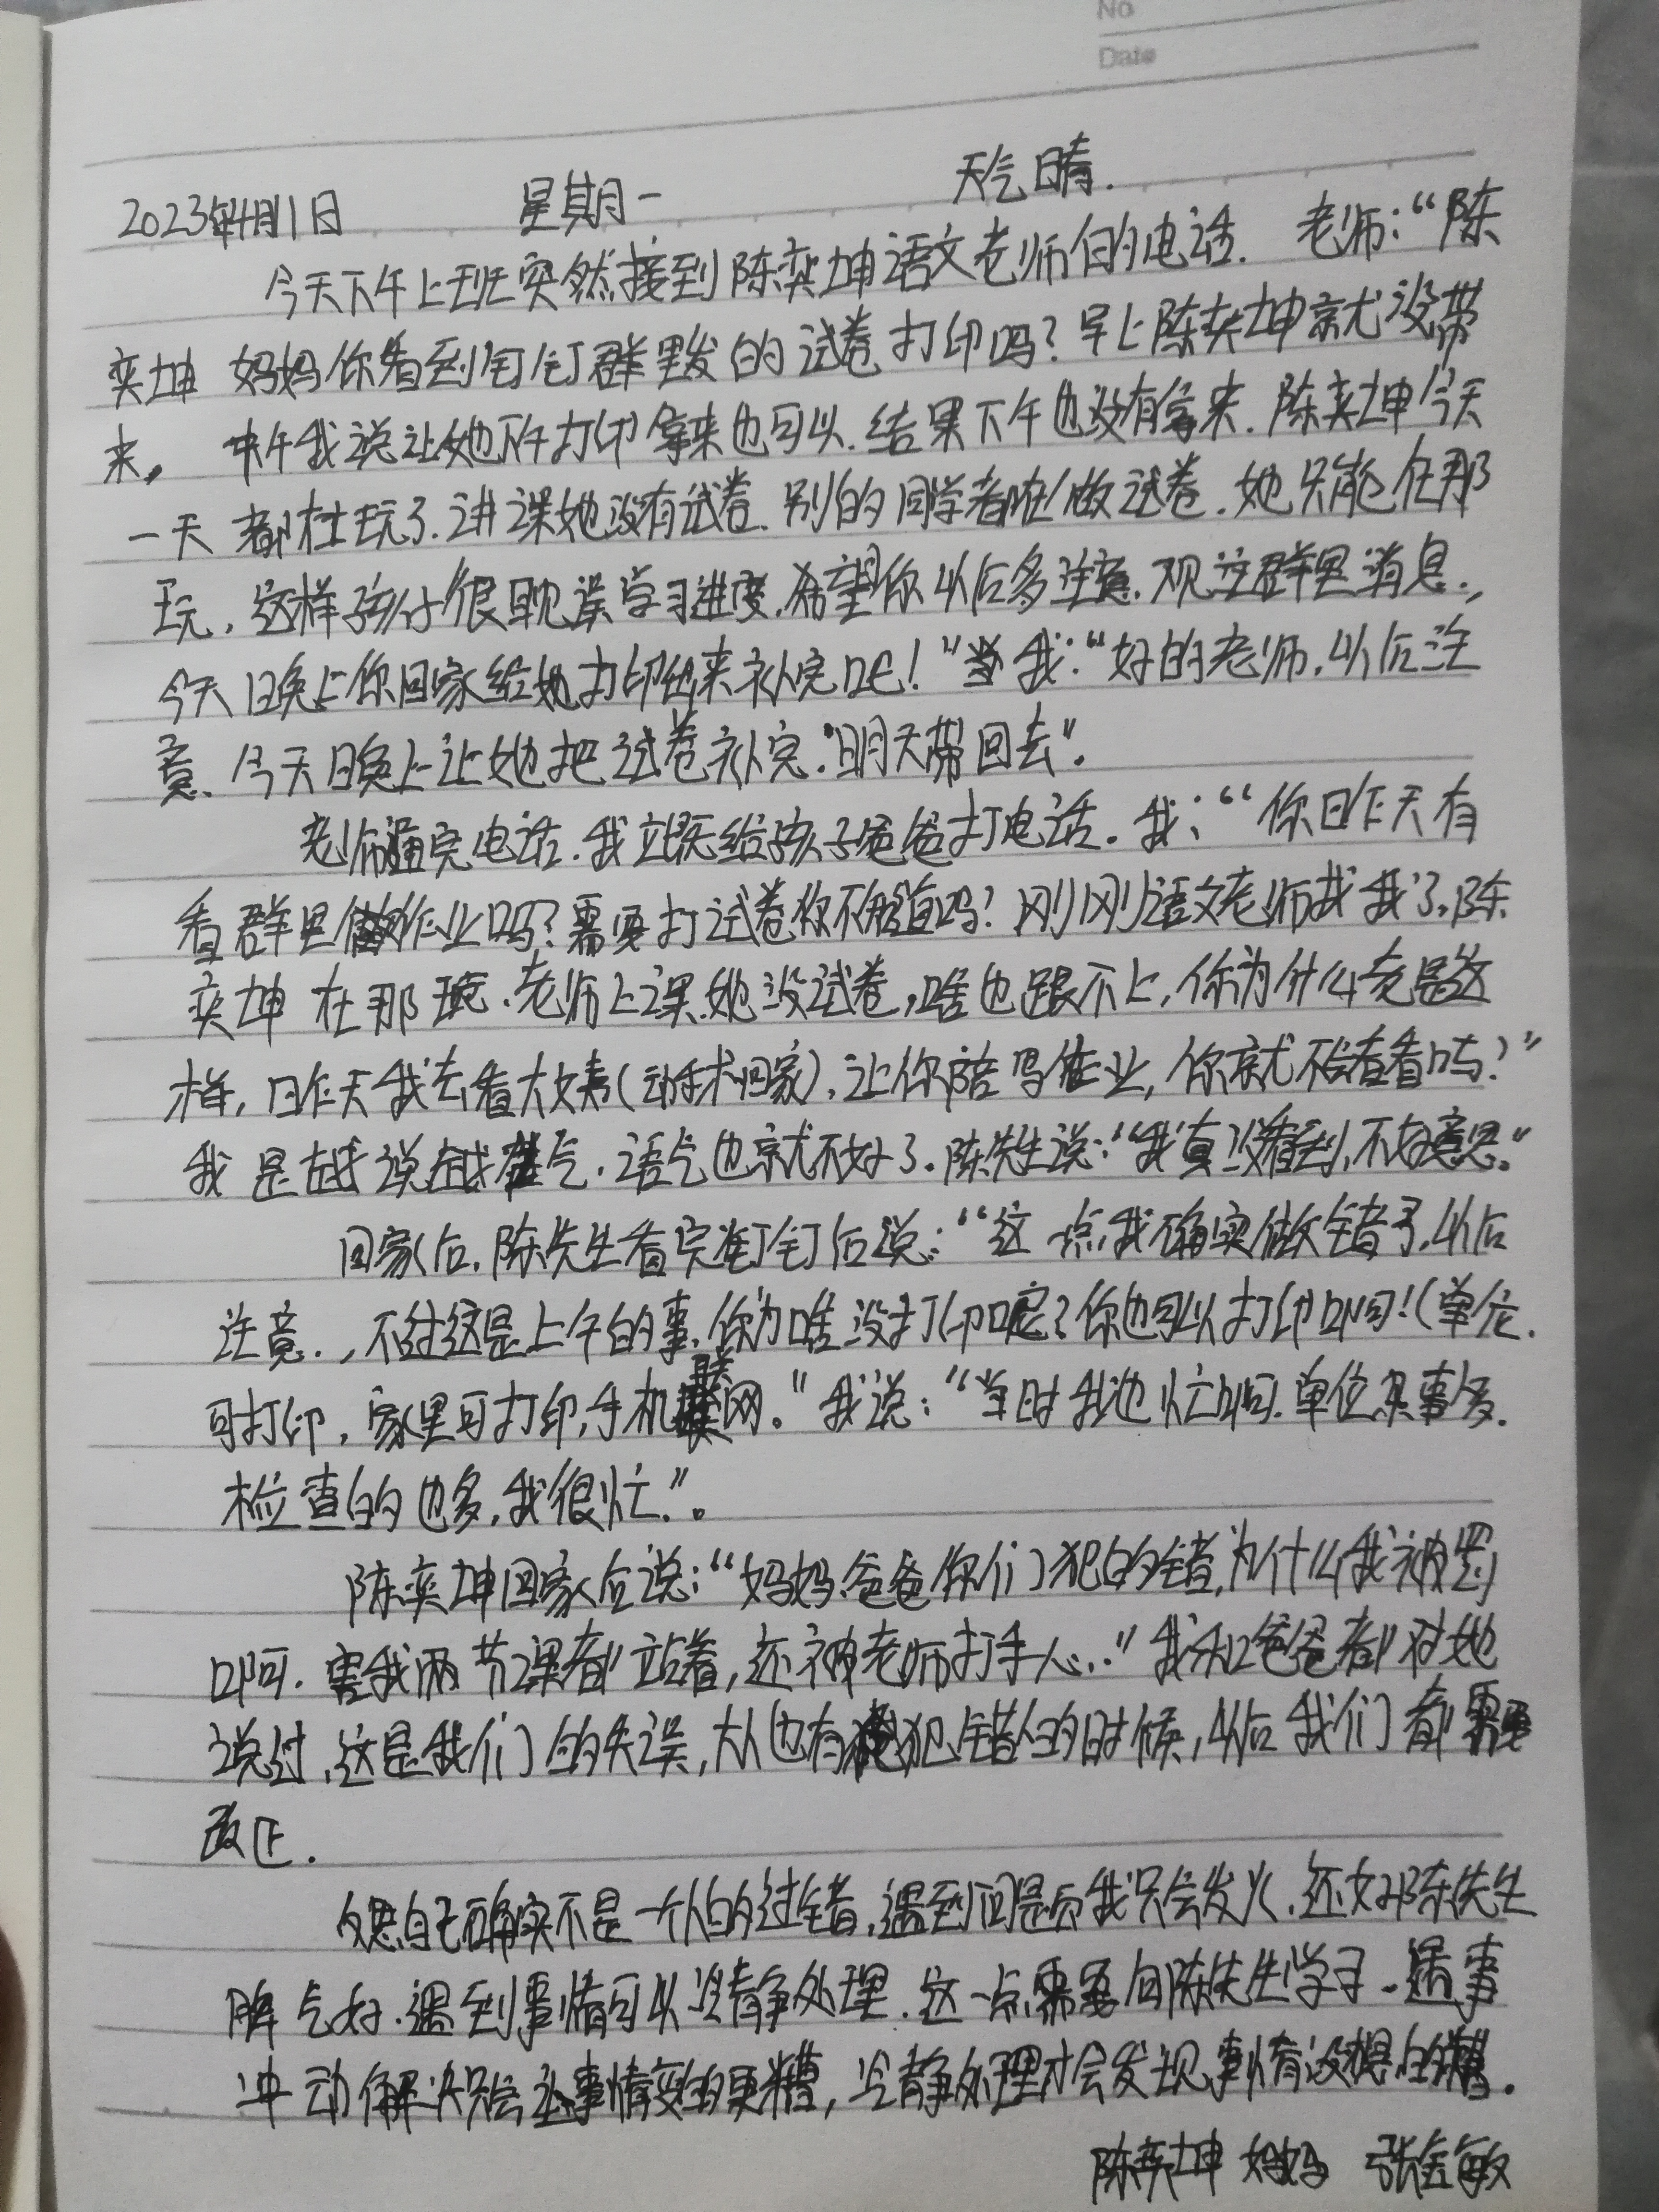 No
Date
2023年4月11日 星期一 天气晴.
今天下午上班突然接到陈奕坤语文老师的电话. 老师:“陈
奕坤 妈妈你看到钉钉群里发的试卷打印吗?早上陈奕坤就没带
来。 中午我说让她下午打印拿来也可以.结果下午也没有拿来.陈奕坤今天
一天都在玩了.讲课她没有试卷.别的同学都在做试卷.她只能在那
玩,这样孩子很耽误学习进度.希望你以后多注意.观注群里消息.,
今天晚上你回家给她打印出来补完吧!”我:“好的老师.以后注
意、今天晚上让她把试卷补完.明天带回去”.
老师通完电话.我立既给孩子爸爸打电话.我:“你昨天有
看群里作业吗?需要打试卷你不知道吗?刚刚语文老师找我了.陈
奕坤 在那玩.老师上课.她没试卷,啥也跟不上,你为什么老是这
样,昨天我去看大姨(动手术回家),让你陪写作业,你就不会看看吗?”
我是越说越生气.语气也就不好了.陈先生说:“我真没看到,不好意思.”
回家后.陈先生看完钉钉后说:“这一点我确实做错了.以后
注意.,不过这是上午的事.你为啥没打印呢?你也可以打印啊!(单位.
可打印,家里可打印,手机联网。”我说:“当时我也忙啊.单位事多.
检查的也多,我很忙.”。
陈奕坤回家后说:“妈妈.爸爸你们犯的错,为什么我被罚
啊.害我两节课都站着,还被老师打手心..”我和爸爸都对她
说过,这是我们的失误,大人也有犯错的时候,以后我们都需要
改正.
反思自己确实不是一个人的过错,遇到问题后我只会发火.还好陈先生
脾气好.遇到事情可以冷静处理.这一点需要向陈先生学习.遇事
冲动解决只会让事情变的更糟,冷静处理才会发现事情没想的.
陈奕坤 妈妈 张金敏